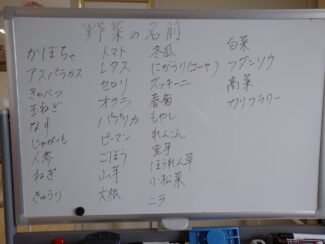 野菜の名前
かぼちゃ
アスパラガス
きゃべつ
玉ねぎ
なす
じゃがいも
人参
ねぎ
きゅうり
トマト
レタス
セロリ
オクラ
パプリカ
ピーマン
ごぼう
山芋
大根
冬瓜
にがうり(ゴーヤ)
ズッキーニ
春菊
もやし
れんこん
里芋
ほうれん草
小松菜
ニラ
白菜
フダンソウ
高菜
カリフラワー